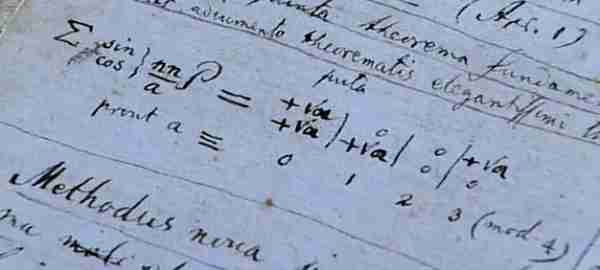 theorema fundame
(Art. 1)
argumento theorematis elegantissimi
puta
Σ sin cos } nn/a P = +√a +√a | 0 +√a | 0 0 | +√a 0
prout a ≡ 0 1 2 3 (mod 4)
Methodus nova